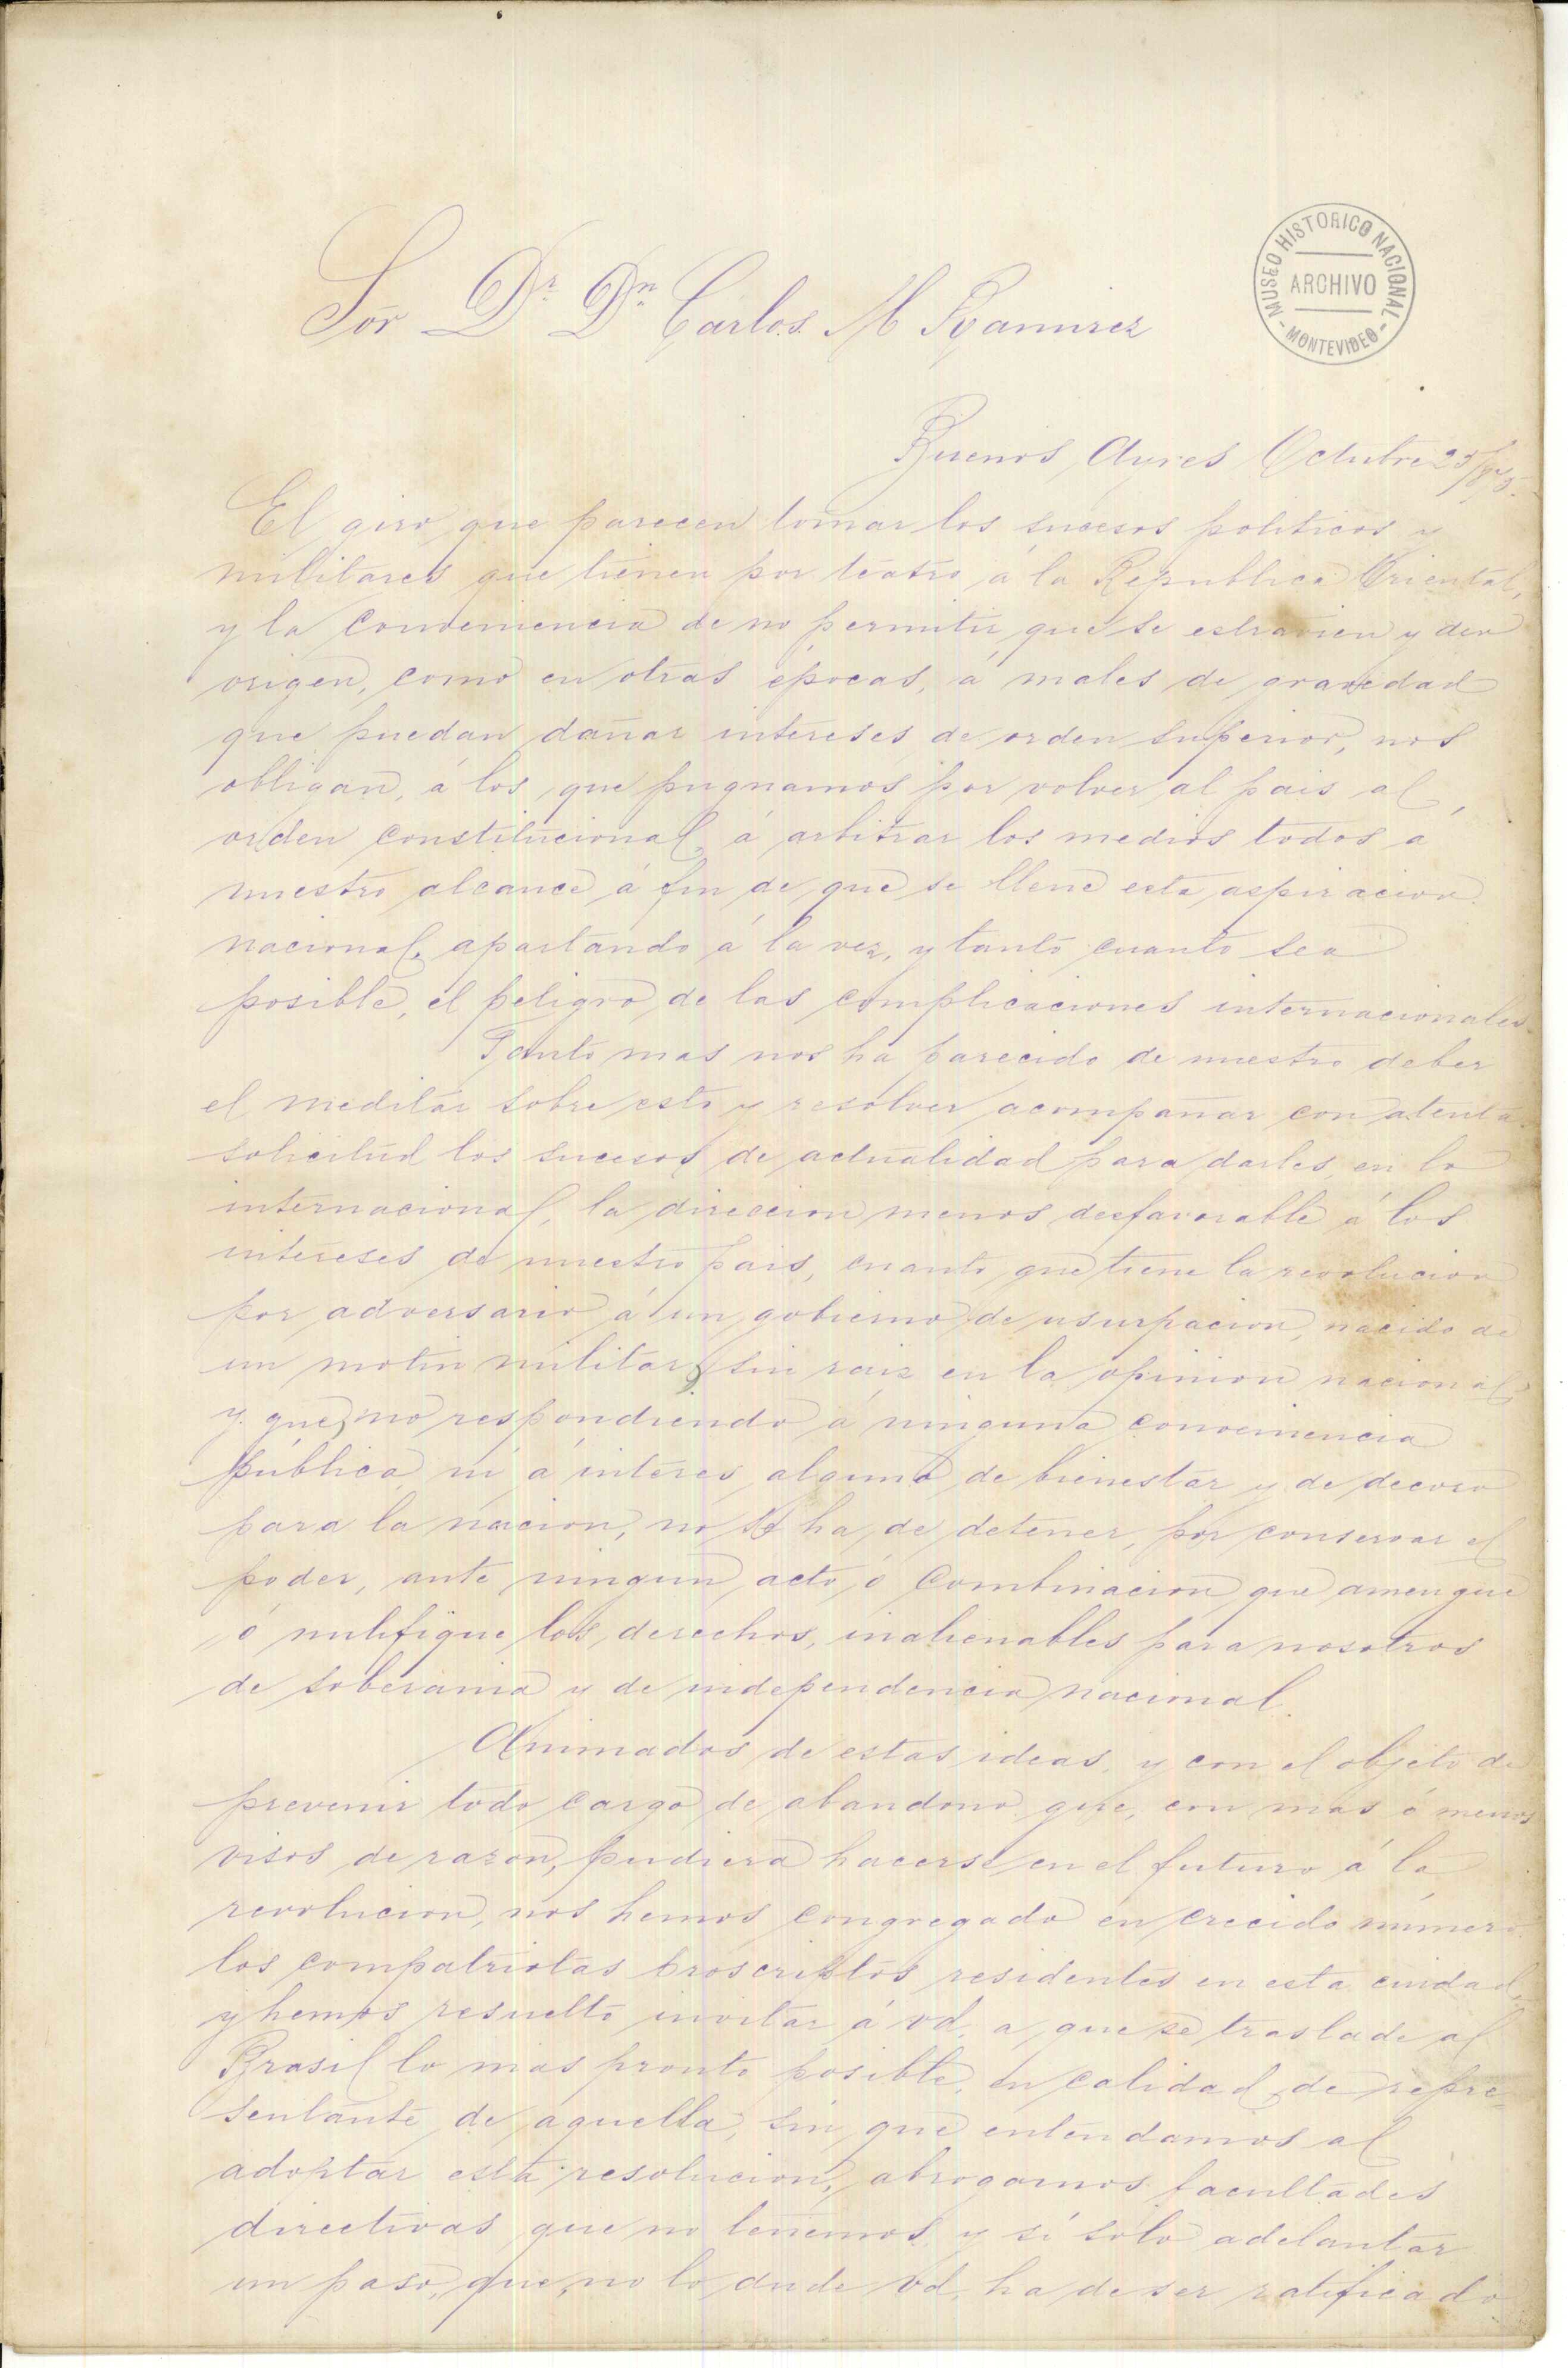 MUSEO HISTORICO NACIONAL
ARCHIVO
- MONTEVIDEO -
Sor Dr. Dn. Carlos M Ramirez
Buenos Ayres Octubre 25/875.
El giro que parecen tomar los sucesos politicos y
militares que tienen por teatro á la Republica Oriental,
y la conveniencia de no permitir que se estravien y den
origen, como en otras épocas, á males de gravedad
que puedan dañar intereses de orden superior, nos
obligan, á los que pugnamos por volver al pais al
orden constitucional, á arbitrar los medios todos á
nuestro alcance á fin de que se llene esta aspiracion
nacional, apartando á la vez, y tanto cuanto sea
posible, el peligro de las complicaciones internacionales.
Tanto mas nos ha parecido de nuestro deber
el meditar sobre esto y resolver acompañar con atenta
solicitud los sucesos de actualidad para darles, en lo
internacional, la direccion menos desfavorable á los
intereses de nuestro pais, cuanto que tiene la revolucion
por adversario á un gobierno de usurpacion, nacido de
un motin militar, sin raiz en la opinion nacional,
y que, no respondiendo á ninguna conveniencia
pública, ni á interes alguno de bienestar y de decoro
para la nacion, no se ha de detener, por conservar el
poder, ante ningun acto, ó combinacion que amengue
ó nulifique los derechos, inalienables para nosotros
de soberania y de independencia nacional.
Animados de estas ideas, y con el objeto de
prevenir todo cargo de abandono que, con mas ó menos
visos de razon, pudiera hacerse en el futuro á la
revolucion, nos hemos congregado en crecido número
los compatriotas proscriptos residentes en esta ciudad,
y hemos resuelto invitar á vd. a que se traslade al
Brasil lo mas pronto posible, en calidad de repre-
sentante de aquella, sin que entendamos al
adoptar esta resolucion, abrogarnos facultades
directivas que no tenemos, y sí sólo adelantar
un paso, que, no lo dude Vd, ha de ser ratificado